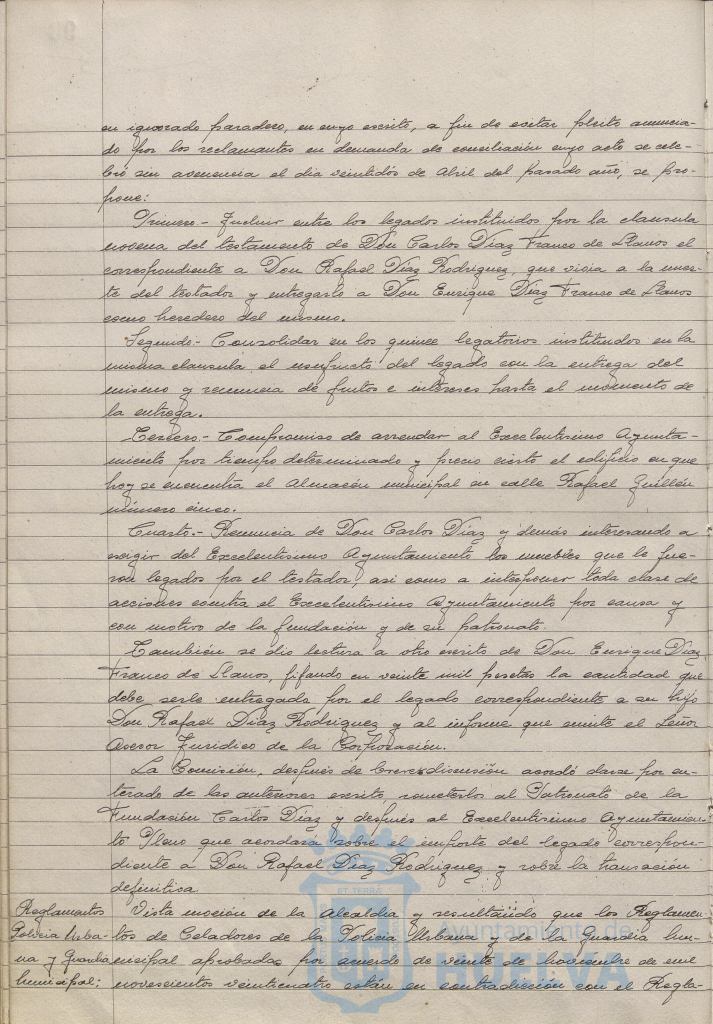 en ignorado paradero, en cuyo escrito, a fin de evitar pleito anuncia-
do por los reclamantes en demanda de conciliación cuyo acto se cele-
bró sin avenencia el dia veintidos de Abril del pasado año, se pro-
pone:
Primero.- Incluir entre los legados instituidos por la clausula
novena del testamento de Don Carlos Díaz Franco de Llanos el
correspondiente a Don Rafael Díaz Rodriguez, que vivia a la muer-
te del testador y entregarlo a Don Enrique Díaz Franco de Llanos
como heredero del mismo.
Segundo.- Consolidar en los quince legatarios instituidos en la
misma clausula el usufructo del legado con la entrega del
mismo y renuncia de frutos e intereses hasta el momento de
la entrega.
Tercero.- Compromiso de arrendar al Excelentisimo Ayunta-
miento por tiempo determinado y precio cierto el edificio en que
hoy se encuentra el Almacén municipal en calle Rafael Guillén
número cinco.
Cuarto.- Renuncia de Don Carlos Díaz y demás interesando a
exigir del Excelentisimo Ayuntamiento los muebles que le fue-
ron legados por el testador, asi como a interponer toda clase de
acciones contra el Excelentisimo Ayuntamiento por causa y
con motivo de la fundación y de su patronato.
También se dio lectura a otro escrito de Don Enrique Díaz
Franco de Llanos, fijando en veinte mil pesetas la cantidad que
debe serle entregada por el legado correspondiente a su hijo
Don Rafael Díaz Rodriguez y al informe que emite el Señor
Asesor Juridico de la Corporación.
La Comisión, después de breve discusión acordó darse por en-
terado de los anteriores escrito remeterlos al Patronato de la
Fundación Carlos Díaz y después al Excelentisimo Ayuntamien-
to Pleno que acordará sobre el importe del legado correspon-
diente a Don Rafael Díaz Rodriguez y sobre la transación
definitiva.
Reglamentos
Policia Urba-
na y Guardia
municipal;
Vista moción de la Alcaldia y resultando que los Reglamen-
tos de Celadores de la Policia Urbana y de la Guardia mu-
nicipal aprobados por acuerdo de veinte de noviembre de mil
novescientos veinticuatro están en contradicción con el Regla-
ET TERRÆ
Ayuntamiento de
HUELVA